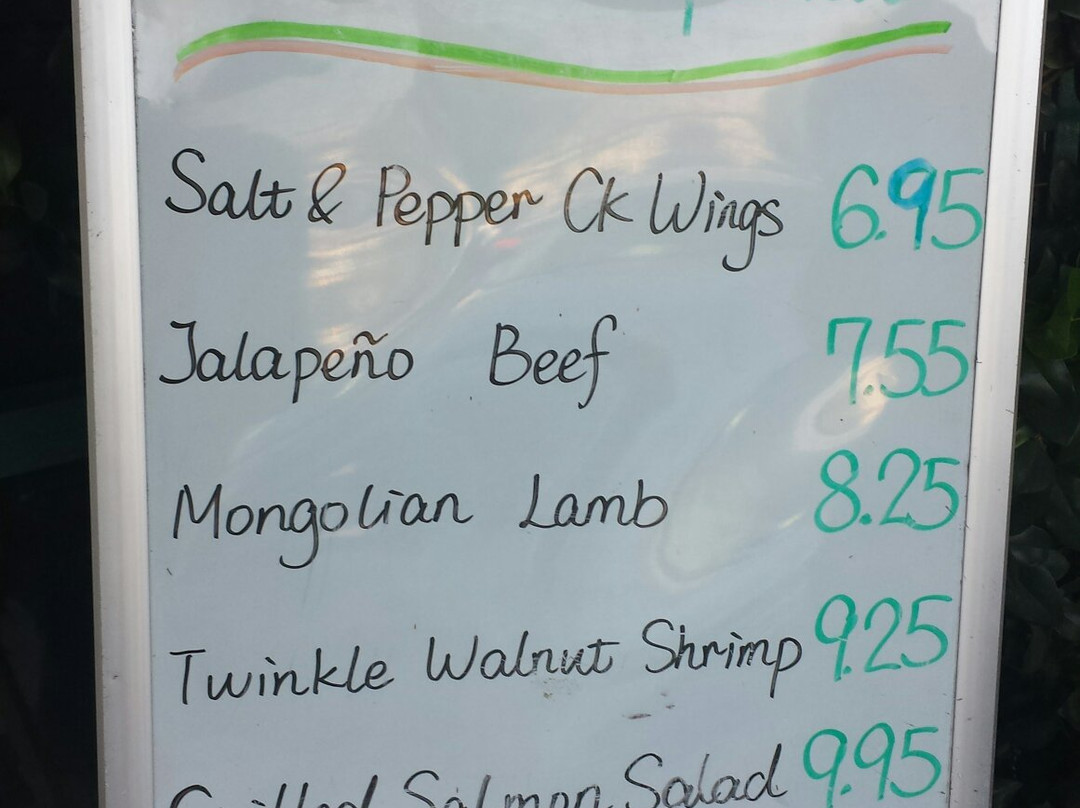 Salt & Pepper Ck Wings 6.95
Jalapeño Beef 7.55
Mongolian Lamb 8.25
Twinkle Walnut Shrimp 9.25
Grilled Salmon Salad 9.95